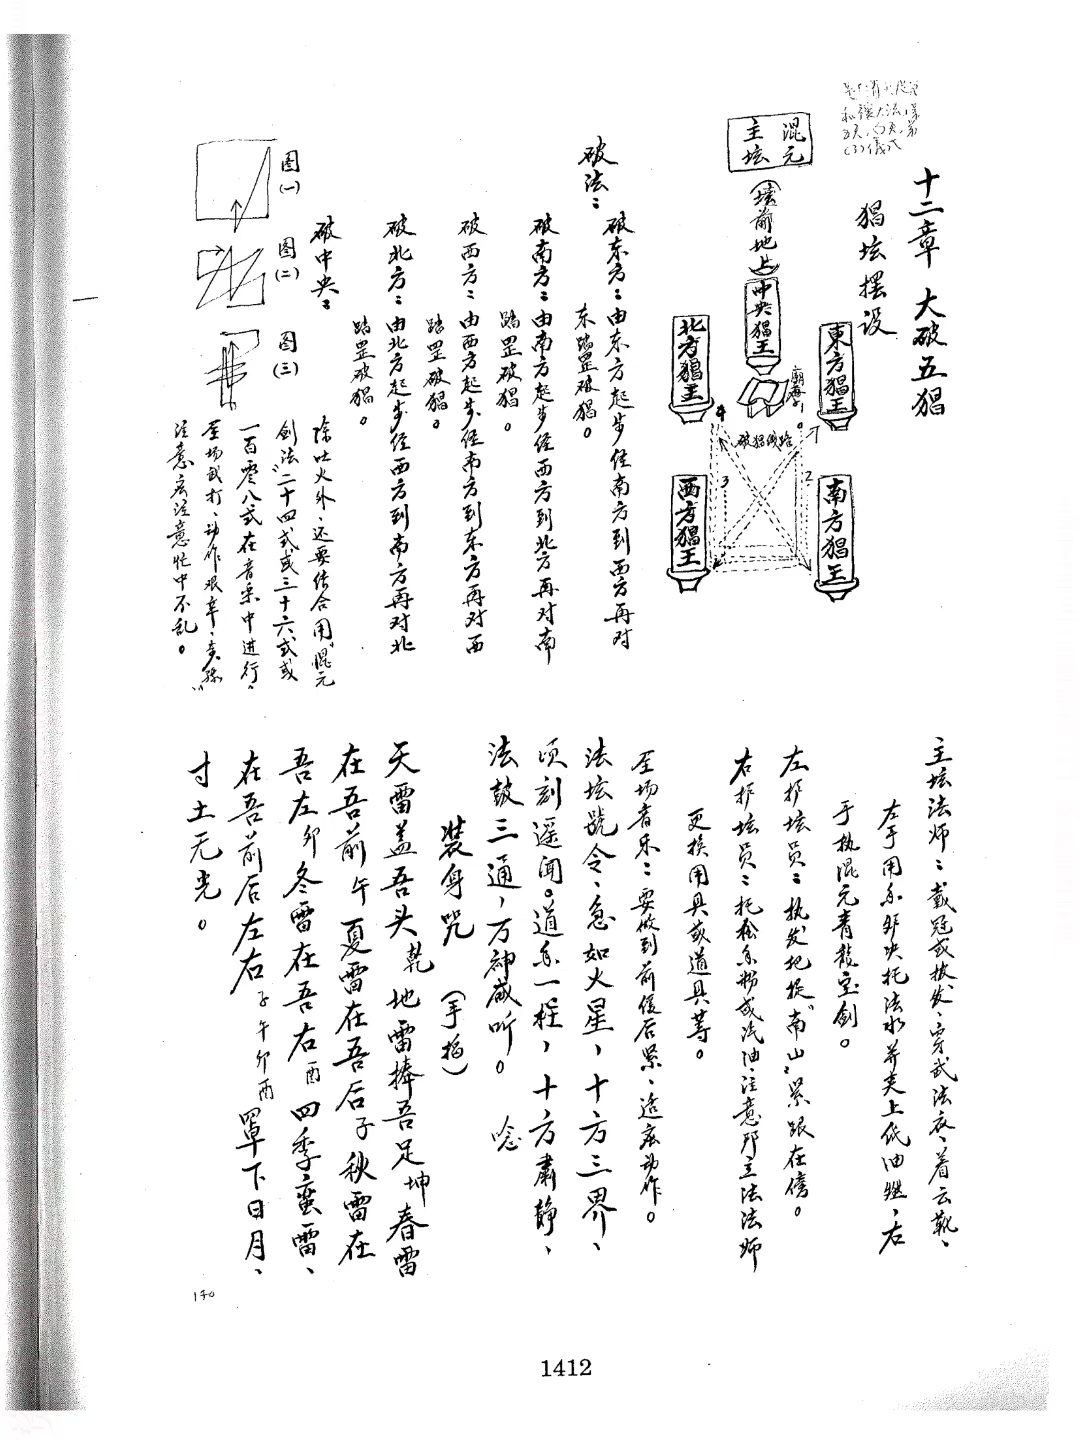 十二章 大破五猖
猖坛摆设
混元
主坛
(坛前地上)
中央猖王
東方猖王
南方猖王
西方猖王
北方猖王
破猖线路
1
2
3
4
破法：
破东方：由东方起步径南方到西方再对
东踏罡破猖。
破南方：由南方起步径西方到北方再对南
踏罡破猖。
破西方：由西方起步径南方到东方再对西
踏罡破猖。
破北方：由北方起步径西方到南方再对北
踏罡破猖。
破中央：
图(一)
图(二)
图(三)
除吐火外、还要结合用“混元
剑法”二十四式或三十六式或
一百零八式在音乐中进行，
全场武打、动作艰辛，
注意应注意忙中不乱。
主坛法师：戴冠或披发、穿武法衣、着云靴、
左手用、托法水并夹上低油、右
手执混元青龍宝剑。
左护坛员：执发把提“南山”紧跟在傍。
右护坛员：托松香粉或汽油、注意那主法法师
更换用具或道具等。
全场音乐：要做到前缓后紧、适应动作。
法坛號令、急如火星，十方三界、
顷刻遥闻。道香一柱，十方肅静、
法鼓三通，万神咸听。 唸
装身咒 (手掐)
天雷盖吾头乾地雷捧吾足坤春雷
在吾前午夏雷在吾后子秋雷在
吾左卯冬雷在吾右酉四季蛮雷、
在吾前后左右子午卯酉罩下日月、
寸土无光。
140
1412